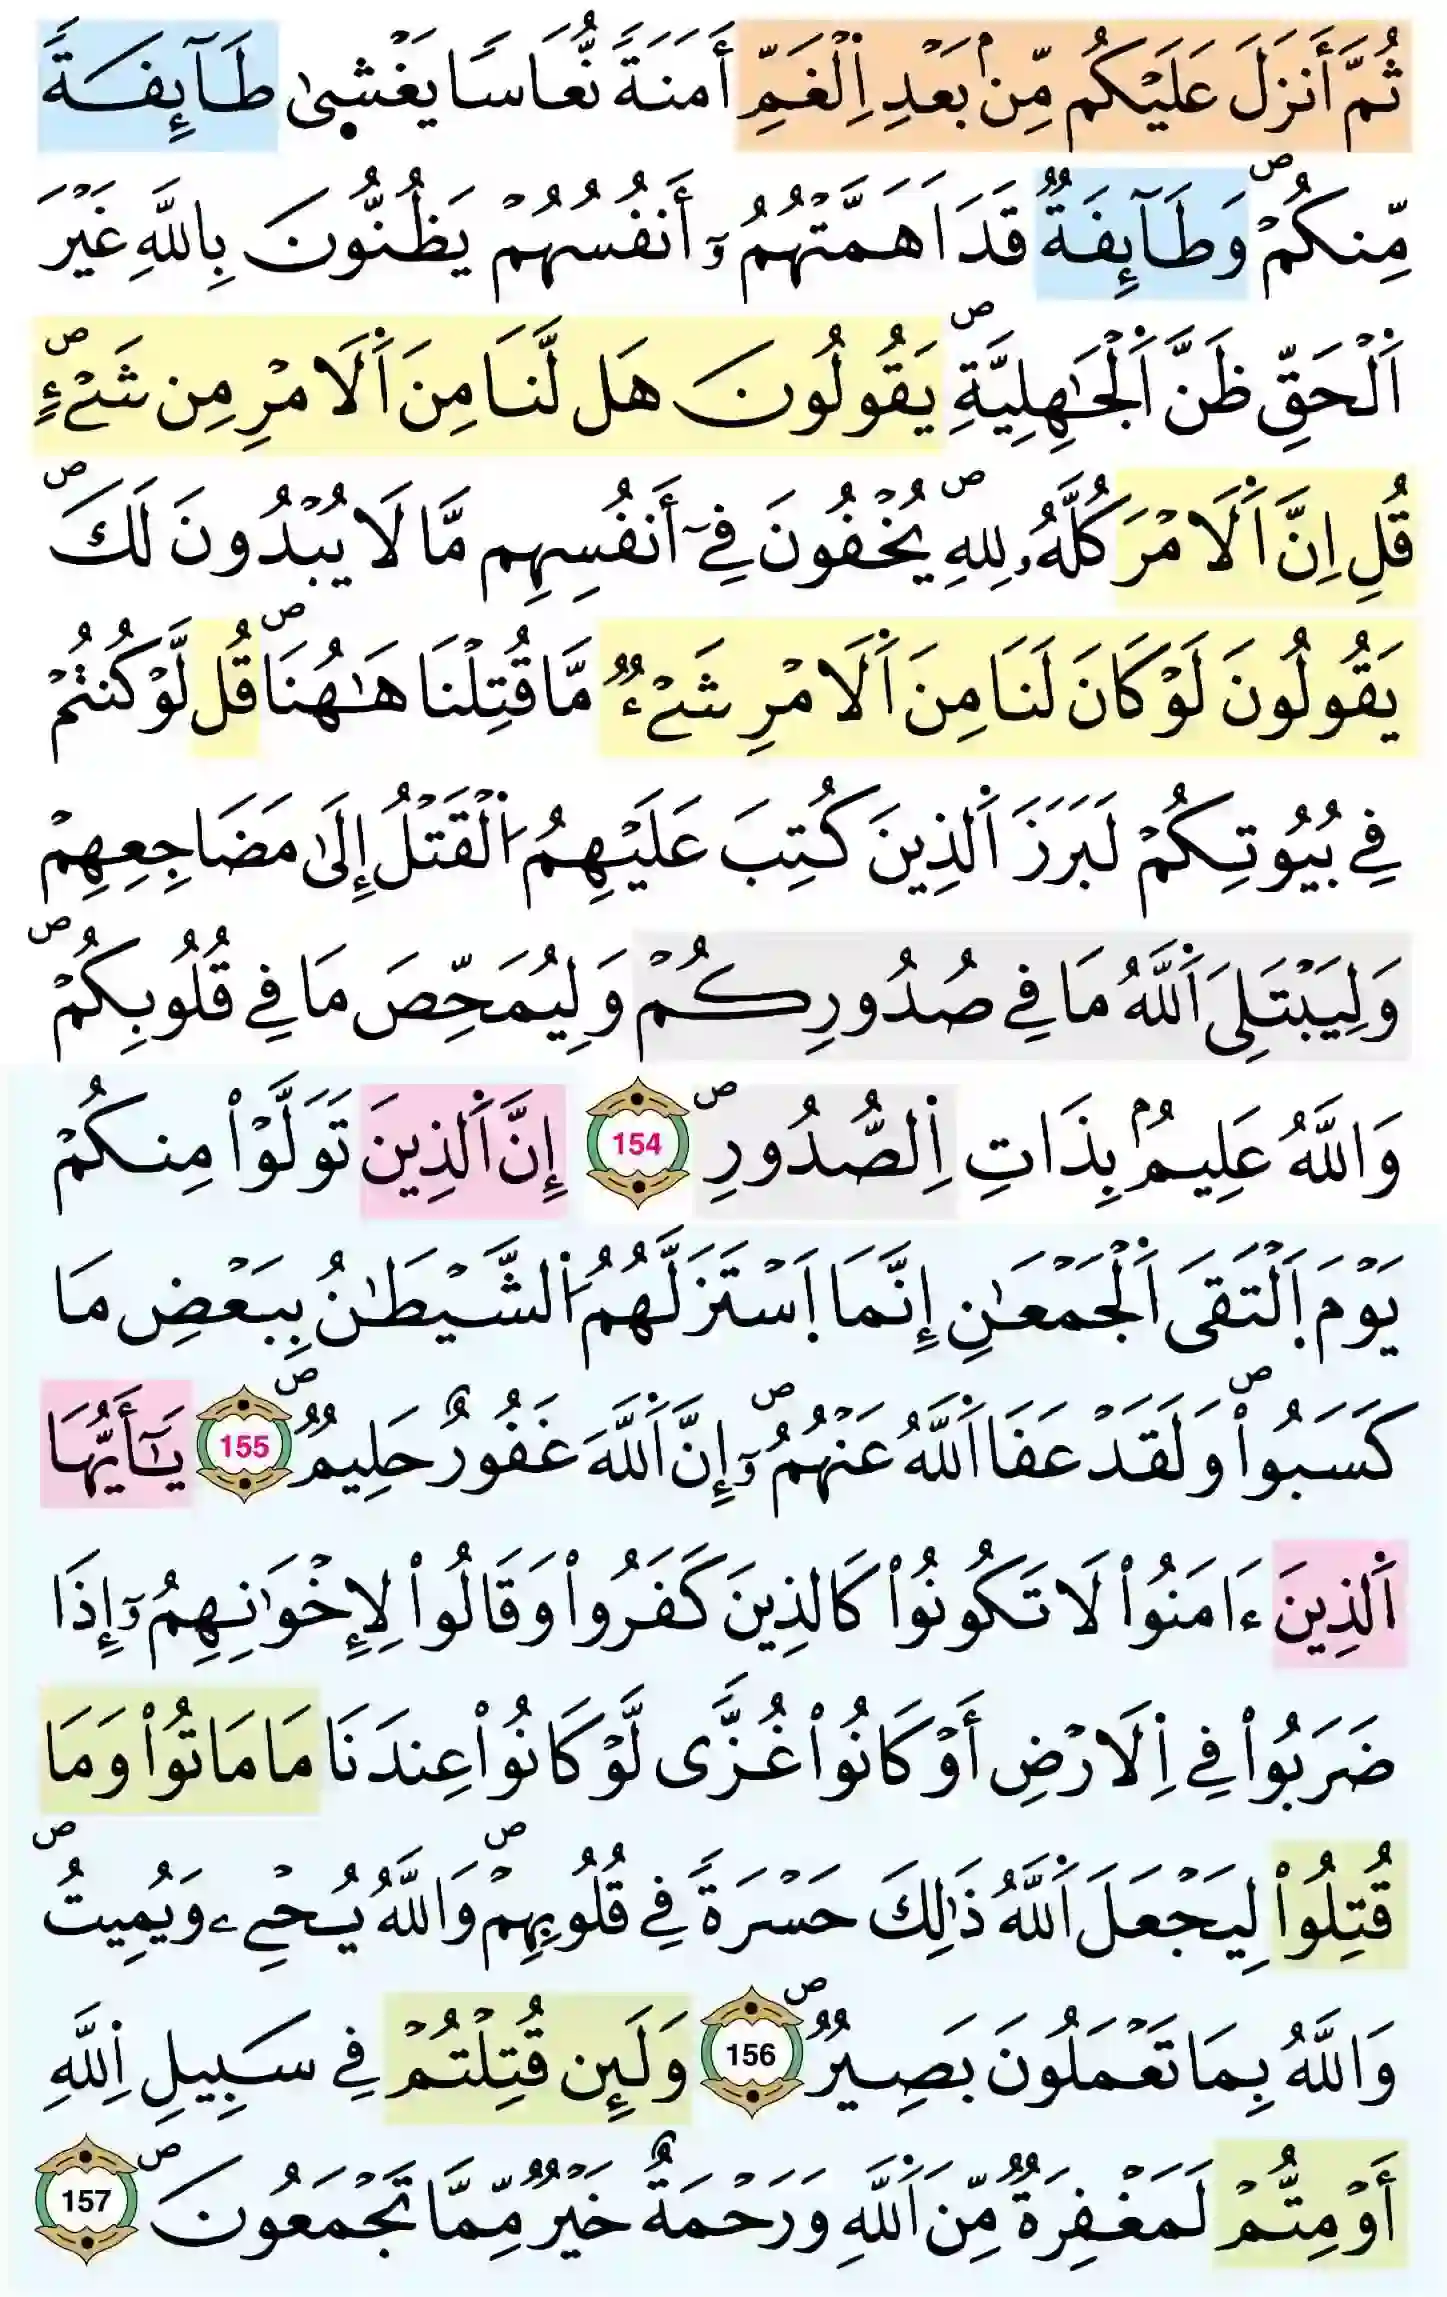 ثُمَّ أَنزَلَ عَلَيْكُم مِّنۢ بَعْدِ اِ۬لْغَمِّ أَمَنَةٗ نُّعَاسٗا يَغْش۪يٰ طَآئِفَةٗ
مِّنكُمْۖ وَطَآئِفَةٞ قَدَ اَهَمَّتْهُمُۥٓ أَنفُسُهُمْ يَظُنُّونَ بِاللَّهِ غَيْرَ
اَ۬لْحَقِّ ظَنَّ اَ۬لْجَٰهِلِيَّةِۖ يَقُولُونَ هَل لَّنَا مِنَ اَ۬لَامْرِ مِن شَےْءٖۖ
قُلِ اِنَّ اَ۬لَامْرَ كُلَّهُۥ لِلهِۖ يُخْفُونَ فِےٓ أَنفُسِهِم مَّا لَا يُبْدُونَ لَكَۖ
يَقُولُونَ لَوْ كَانَ لَنَا مِنَ اَ۬لَامْرِ شَےْءٞ مَّا قُتِلْنَا هَٰهُنَاۖ قُل لَّوْ كُنتُمْ
فِے بُيُوتِكُمْ لَبَرَزَ اَ۬لذِينَ كُتِبَ عَلَيْهِمُ اُ۬لْقَتْلُ إِلَىٰ مَضَاجِعِهِمْ
وَلِيَبْتَلِيَ اَ۬للَّهُ مَا فِے صُدُورِكُمْ وَلِيُمَحِّصَ مَا فِے قُلُوبِكُمْۖ
وَاللَّهُ عَلِيمُۢ بِذَاتِ اِ۬لصُّدُورِۖ 154 إِنَّ اَ۬لذِينَ تَوَلَّوْاْ مِنكُمْ
يَوْمَ اَ۪لْتَقَى اَ۬لْجَمْعَٰنِ إِنَّمَا اَ۪سْتَزَلَّهُمُ اُ۬لشَّيْطَٰنُ بِبَعْضِ مَا
كَسَبُواْۖ وَلَقَدْ عَفَا اَ۬للَّهُ عَنْهُمُۥٓۖ إِنَّ اَ۬للَّهَ غَفُورٌ حَلِيمٞۖ 155 يَٰٓأَيُّهَا
اَ۬لذِينَ ءَامَنُواْ لَا تَكُونُواْ كَالذِينَ كَفَرُواْ وَقَالُواْ لِإِخْوَٰنِهِمُۥٓ إِذَا
ضَرَبُواْ فِے اِ۬لَارْضِ أَوْ كَانُواْ غُزّٗى لَّوْ كَانُواْ عِندَنَا مَا مَاتُواْ وَمَا
قُتِلُواْ لِيَجْعَلَ اَ۬للَّهُ ذَٰلِكَ حَسْرَةٗ فِے قُلُوبِهِمْۖ وَاللَّهُ يُحْيِۦ وَيُمِيتُۖ
وَاللَّهُ بِمَا تَعْمَلُونَ بَصِيرٞۖ 156 وَلَئِن قُتِلْتُمْ فِے سَبِيلِ اِ۬للَّهِ
أَوْ مِتُّمْ لَمَغْفِرَةٞ مِّنَ اَ۬للَّهِ وَرَحْمَةٌ خَيْرٞ مِّمَّا تَجْمَعُونَۖ 157